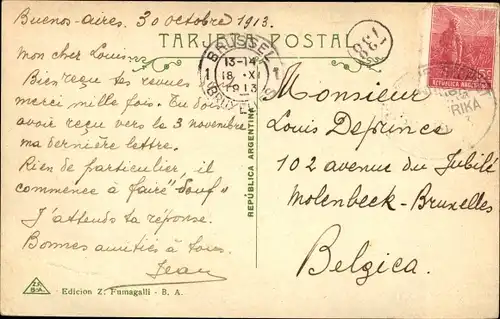 Buenos-aires. 30 octobre 1913.
TARJETA POSTAL
Mon cher Louis
Bien reçu tes revues
merci mille fois. Tu dois
avoir reçu vers le 3 novembre
ma dernière lettre.
Rien de particulier, il
commence à faire "Louf"
J'attends ta réponse.
Bonnes amitiés à tous.
Jean
BRUSSEL
1 13-14 1
18 XI
1913
REPÚBLICA ARGENTINA
Monsieur
Louis Deprince
102 avenue du Jubilé
Molenbeck-Bruxelles
Belgica.
Edicion Z. Fumagalli - B. A.